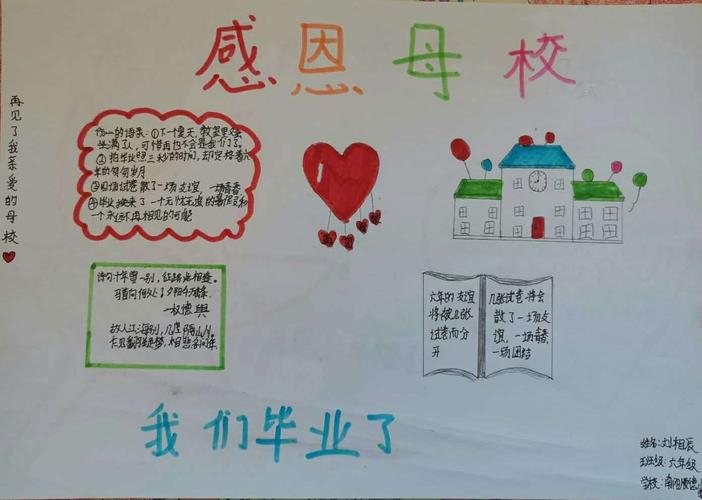 感恩母校
再见了我亲爱的母校
伤心的语录：①下一个夏天，教室里又会
坐满了人，可惜再也不会是我们了。
②拍毕业照三秒的时间，却定格着六
年的匆匆岁月
③四场试卷散了一场友谊，一场青春
④毕业换来了一个无忧无虑的暑假和
一个永远不再相见的可能
诗句：十年曾一别，征路此相逢。
马首向何处？夕阳千万峰。
—权德舆
故人江海别，几度隔山川。
乍见翻疑梦，相悲各问年
六年的友谊
将被几张
试卷而分
开
几张试卷将会
散了一场友
谊，一场青春，
一场团结
我们毕业了
姓名：刘相辰
班级：六年级
学校：南